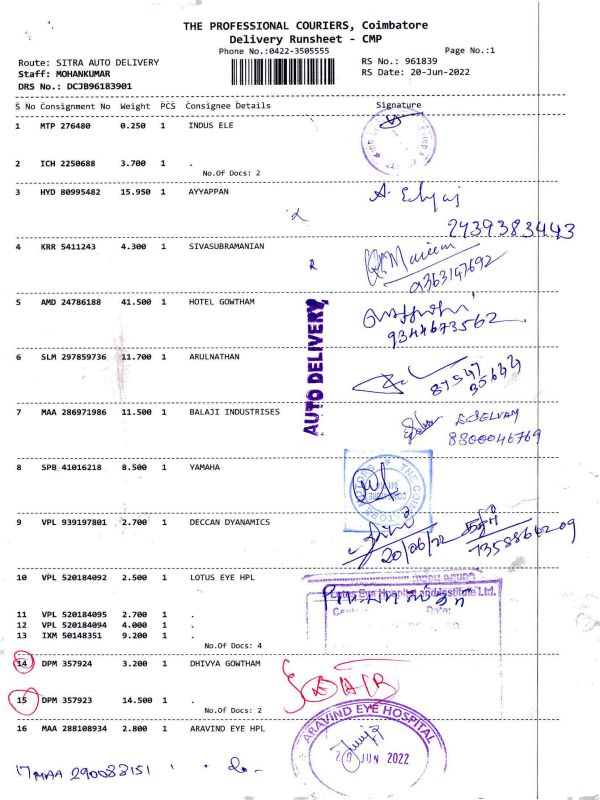 THE PROFESSIONAL COURIERS, Coimbatore
Delivery Runsheet - CMP
Phone No.:0422-3505555
Page No.:1
Route: SITRA AUTO DELIVERY
RS No.: 961839
Staff: MOHANKUMAR
RS Date: 20-Jun-2022
DRS No.: DCJB96183901
S No Consignment No Weight PCS Consignee Details Signature
1 MTP 276480 0.250 1 INDUS ELE
2 ICH 2250688 3.700 1 .
No.Of Docs: 2
3 HYD 80995482 15.950 1 AYYAPPAN
2439383443
4 KRR 5411243 4.300 1 SIVASUBRAMANIAN
9363147692
5 AMD 24786188 41.500 1 HOTEL GOWTHAM
9344673562
AUTO DELIVERY,
6 SLM 297859736 11.700 1 ARULNATHAN
87547
35644
7 MAA 286971986 11.500 1 BALAJI INDUSTRISES
SELVAM
8800046769
8 SPB 41016218 8.500 1 YAMAHA
THE COIMBATORE MOTORS
9 VPL 939197801 2.700 1 DECCAN DYANAMICS
20/06/22
10 VPL 520184092 2.500 1 LOTUS EYE HPL
Lotus Eye Hospital and Institute Ltd.
Date:
11 VPL 520184095 2.700 1 .
12 VPL 520184094 4.000 1 .
13 IXM 50148351 9.200 1 .
No.Of Docs: 4
14 DPM 357924 3.200 1 DHIVYA GOWTHAM
15 DPM 357923 14.500 1 .
No.Of Docs: 2
16 MAA 288108934 2.800 1 ARAVIND EYE HPL
ARAVIND EYE HOSPITAL
20 JUN 2022
17 MAA 290083151